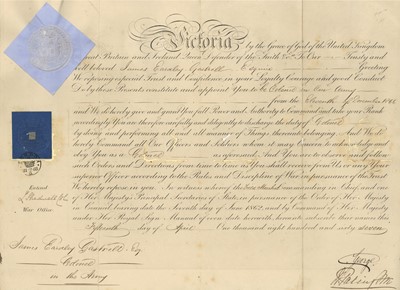 Victoria by the Grace of God of the United Kingdom
of Great Britain and Ireland Queen Defender of the Faith &c. To Our Trusty and
well beloved James Eardley Gastrell Esquire Greeting
We reposing especial Trust and Confidence in your Loyalty Courage and good Conduct
Do by these Presents constitute and appoint You to be Colonel in Our Army
from the of December 18
and We do hereby give and grant you full Power and Authority to Command and take your Rank
accordingly You are therefore carefully and diligently to discharge the duty of Colonel
by doing and performing all and all manner of Things thereunto belonging And We do
hereby Command all Our Officers and Soldiers whom it may Concern to acknowledge and
obey You as a Colonel as aforesaid And You are to observe and follow
such Orders and Directions from time to time as You shall receive from Us or any Your
superior Officer according to the Rules and Discipline of War in pursuance of the Trust
We hereby repose in you In witness whereof the Commanding in Chief and one
of Her Majesty's Principal Secretaries of State in pursuance of the Order of Her Majesty
in Council bearing date the Seventh day of June 1862 and by Command of Her Majesty
under Her Royal Sign Manual of even date herewith hereunto subscribe their names this
Fifteenth day of April One thousand eight hundred and sixty seven
Entered
War Office
James Eardley Gastrell Esq
Colonel
in the Army
George